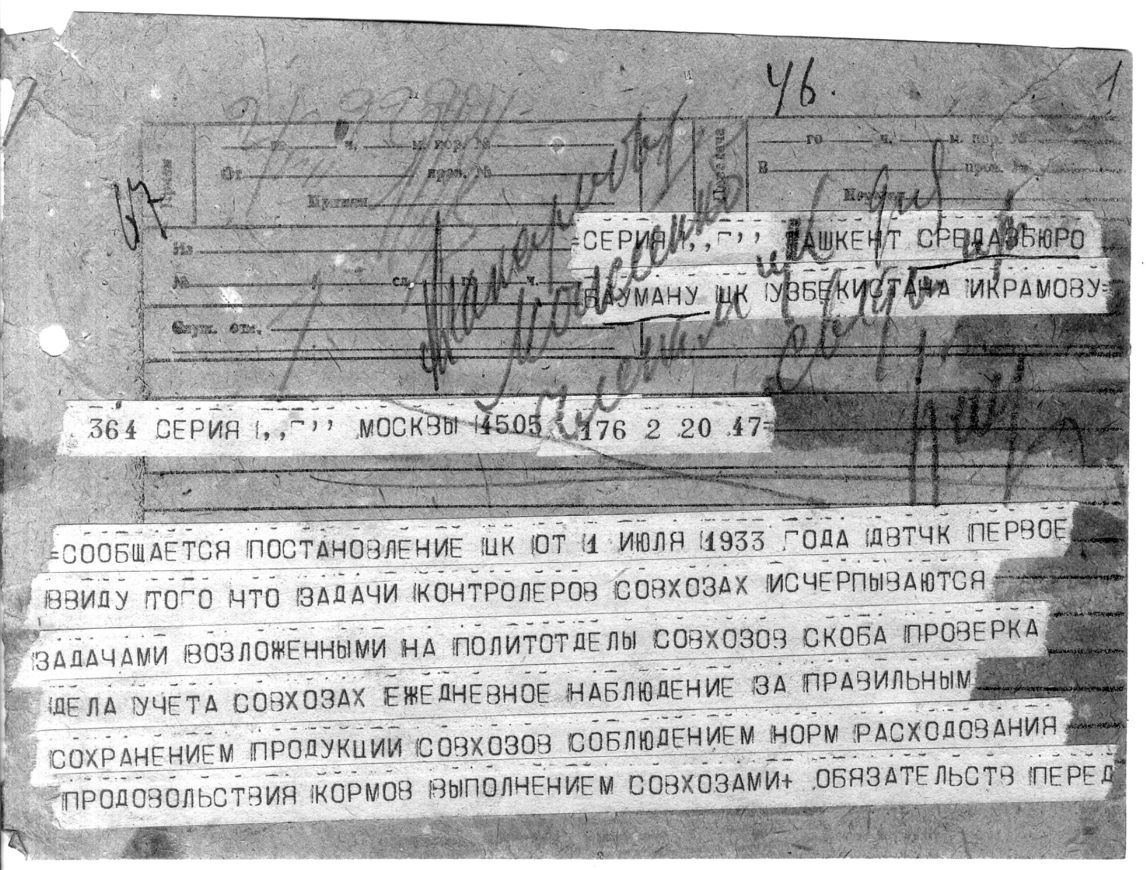 46.
1
67
го ч. м. кор. №
го ч. м. кор. №
От пров. №
В пров. №
Принял
=СЕРИЯ ,,Г’’ ТАШКЕНТ СРЕДАЗБЮРО
Из
БАУМАНУ ЦК УЗБЕКИСТАНА ИКРАМОВУ=
№ сл. ч.
Служ. отм.
364 СЕРИЯ ,,Г’’ МОСКВЫ 4505 176 2 20 47=
=СООБЩАЕТСЯ ПОСТАНОВЛЕНИЕ ЦК ОТ 1 ИЮЛЯ 1933 ГОДА ДВТЧК ПЕРВОЕ
ВВИДУ ТОГО ЧТО ЗАДАЧИ КОНТРОЛЕРОВ СОВХОЗАХ ИСЧЕРПЫВАЮТСЯ
ЗАДАЧАМИ ВОЗЛОЖЕННЫМИ НА ПОЛИТОТДЕЛЫ СОВХОЗОВ СКОБА ПРОВЕРКА
ДЕЛА УЧЕТА СОВХОЗАХ ЕЖЕДНЕВНОЕ НАБЛЮДЕНИЕ ЗА ПРАВИЛЬНЫМ
СОХРАНЕНИЕМ ПРОДУКЦИИ СОВХОЗОВ СОБЛЮДЕНИЕМ НОРМ РАСХОДОВАНИЯ
ПРОДОВОЛЬСТВИЯ КОРМОВ ВЫПОЛНЕНИЕМ СОВХОЗАМИ+ ОБЯЗАТЕЛЬСТВ ПЕРЕД